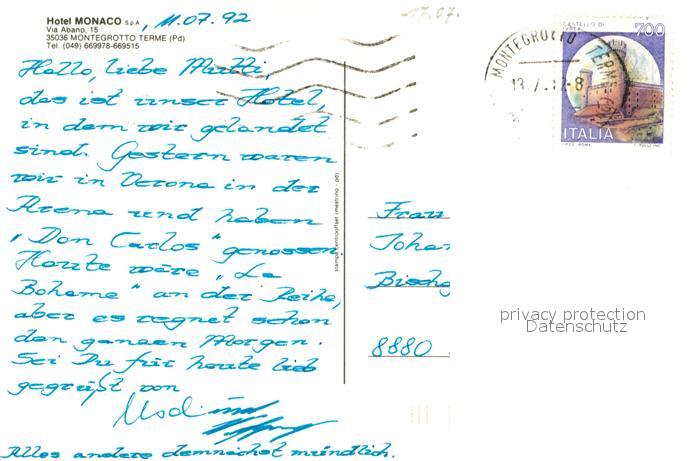 Hotel MONACO S.p.A.
Via Abano, 15
35036 MONTEGROTTO TERME (Pd)
Tel. (049) 669978-669515
, 11.07.92
17.07.
Hallo, liebe Mutti,
das ist unser Hotel,
in dem wir gelandet
sind. Gestern waren
wir in Verona in der
Arena und haben
"Don Carlos" genossen.
Heute wäre "La
Boheme" an der Reihe,
aber es regnet schon
den ganzen Morgen.
Sei Du für heute lieb
gegrüßt von
und
Alles andere demnächst mündlich.
MONTEGROTTO TERME
13.7.92-8
CASTELLO DI
700
ITALIA
Frau
Johan
Bischo
8880
privacy protection
Datenschutz